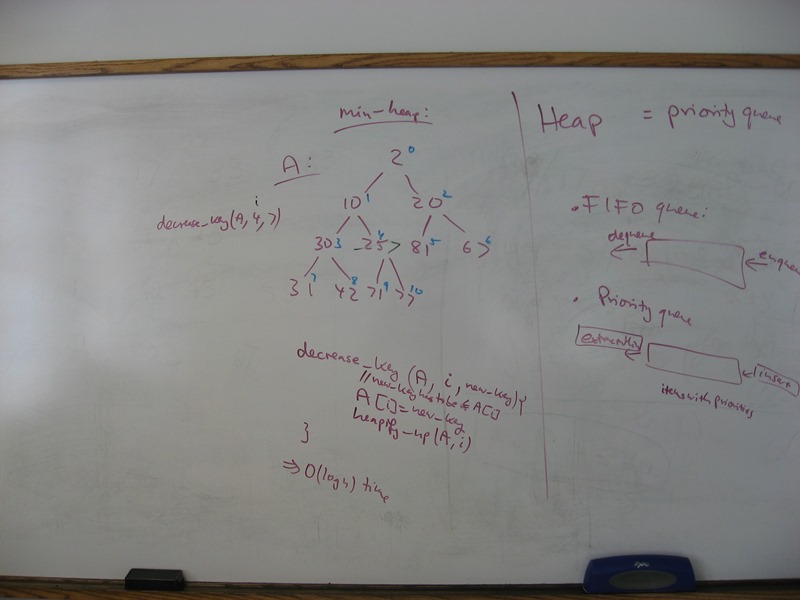 min-heap:
A:
2 0
10 1 20 2
i
decrease_key(A, 4, 7)
30 3 25 4 7 81 5 67 6
31 7 42 8 71 9 77 10
decrease_key (A, i, new-key) {
//new-key has to be ≤ A[i]
A[i] = new-key
heapify-up (A, i)
}
⇒ O(log n) time
Heap = priority queue
• FIFO queue:
dequeue enqueue
• Priority queue
extractMin insert
items with priorities